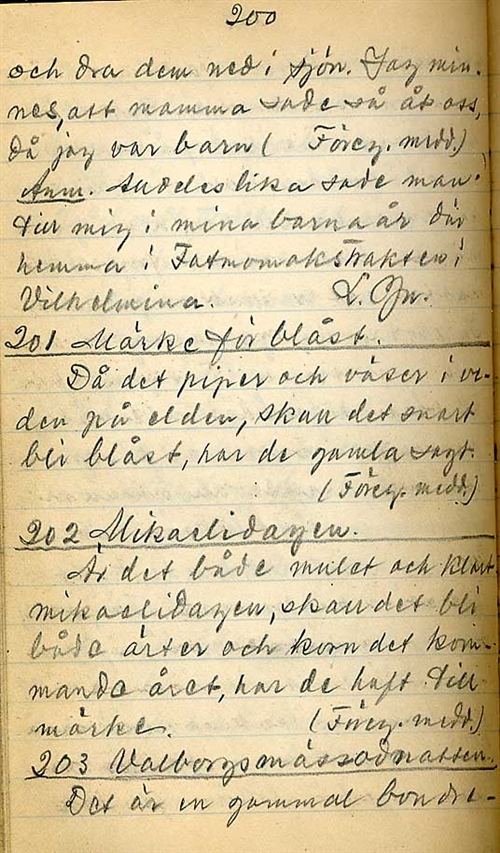 200
och dra dem ned i sjön. Jag min-
nes, att mamma sade så åt oss,
då jag var barn ( Föreg. medd.)
Anm. Alldeles lika sade man
till mig i mina barnaår där
hemma i Fatmomakstrakten i
Vilhelmina. L. Gn.
201 Märke för blåst.
Då det piper och väser i ve-
den på elden, skall det snart
bli blåst, har de gamla sagt.
(Föreg. medd.)
202 Mikaelidagen.
Är det både mulet och klart
mikaelidagen, skall det bli
både ärter och korn det kom-
mande året, har de haft till
märke. (Föreg. medd.)
203 Valborgsmässodnatten.
Det är en gammal bondre-